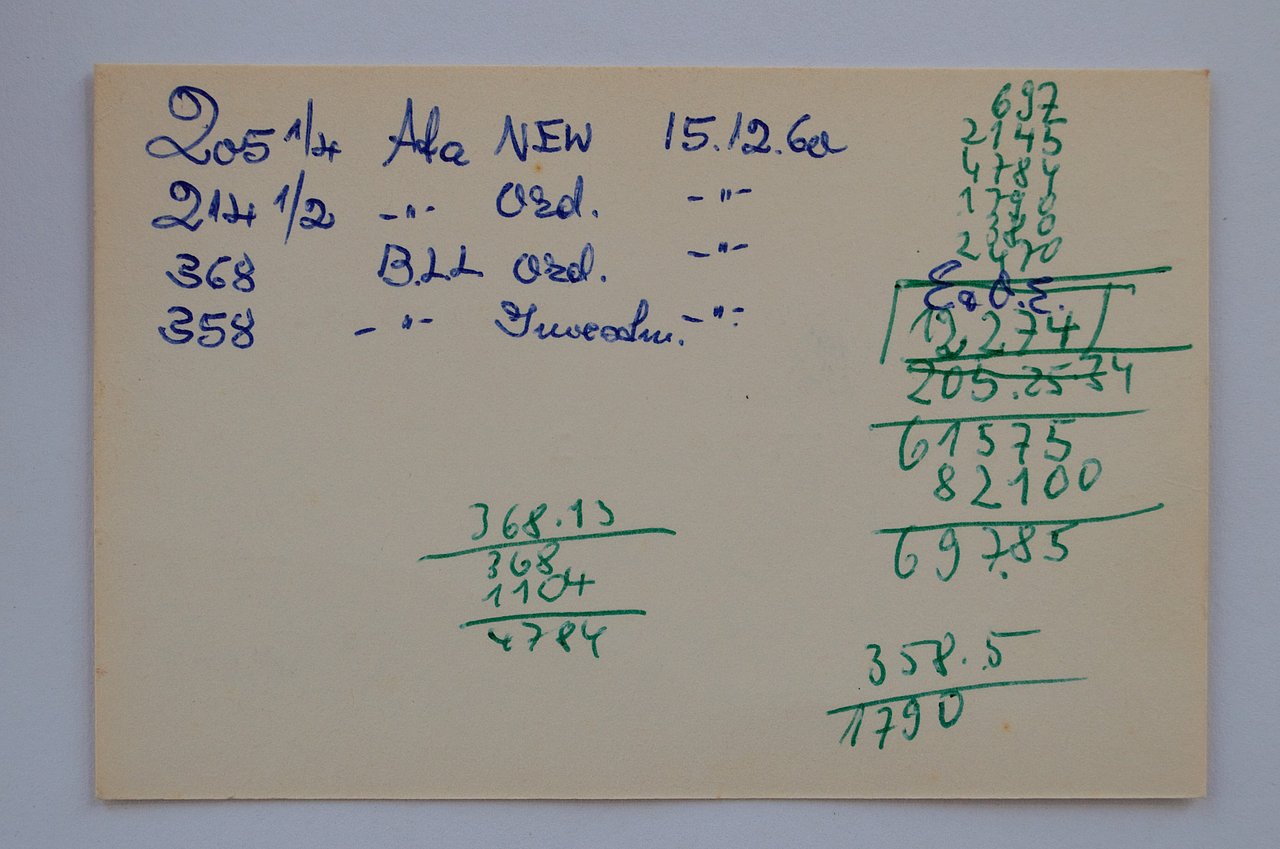 205 1/4 Ata NEW 15.12.60
214 1/2 -"- Ord. -"-
368 B.LL Ord. -"-
358 -"- -"-
697
2145
4784
1790
2470
E.O.E.
12,274
205.25
61575
82100
697.85
368.13
368
1104
4784
358.5
1790